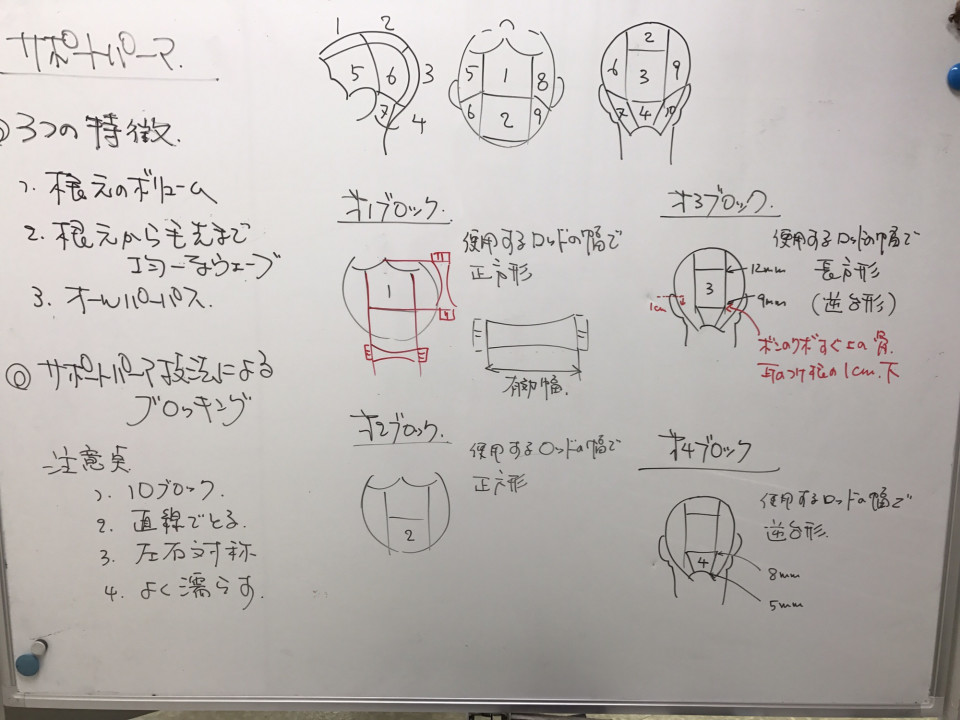 サポートパーマ.
◎3つの特徴.
1. 根元のボリューム
2. 根元から毛先まで
均一なウェーブ
3. オールパーパス.
◎ サポートパーマ技法による
ブロッキング
注意点
1. 10ブロック.
2. 直線でとる.
3. 左右対称
4. よく濡らす.
1 2
5 6 3
7 4
5 1 8
6 2 9
2
6 3 9
7 4 10
才1ブロック.
使用するロッドの幅で
正方形
11
1
9
有効幅.
才2ブロック.
使用するロッドの幅で
正方形
2
才3ブロック.
使用するロッドの幅で
長方形
(逆台形)
12mm
3
9mm
1cm
ボンのクボすぐ上の骨.
耳のつけ根の1cm.下
才4ブロック
使用するロッドの幅で
逆台形.
4
8mm
5mm